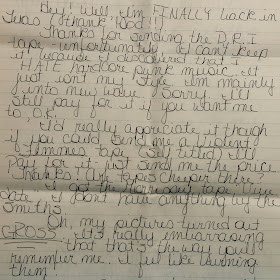 Hey! Well I'm FINALLY back in
Texas (thank God!)
Thanks for sending the D.R.I
tape - unfortunately, I can't keep
it because I discovered that I
HATE hardcore punk music. It
just isn't my style. I'm mainly
into new wave. Sorry. I'll
still pay for it if you want me
to, O.K.
I'd really appreciate it though
if you could send me a Violent
Femmes tape (self titled) I'll
pay for it, just send me the price.
Thanks! Are tapes cheaper there?
I got the tape,
I don't have anything by the
Smiths.
Oh, my pictures turned out
GROSS. It's really embarassing
that that's the way you'll
remember me. I feel like burning
them!